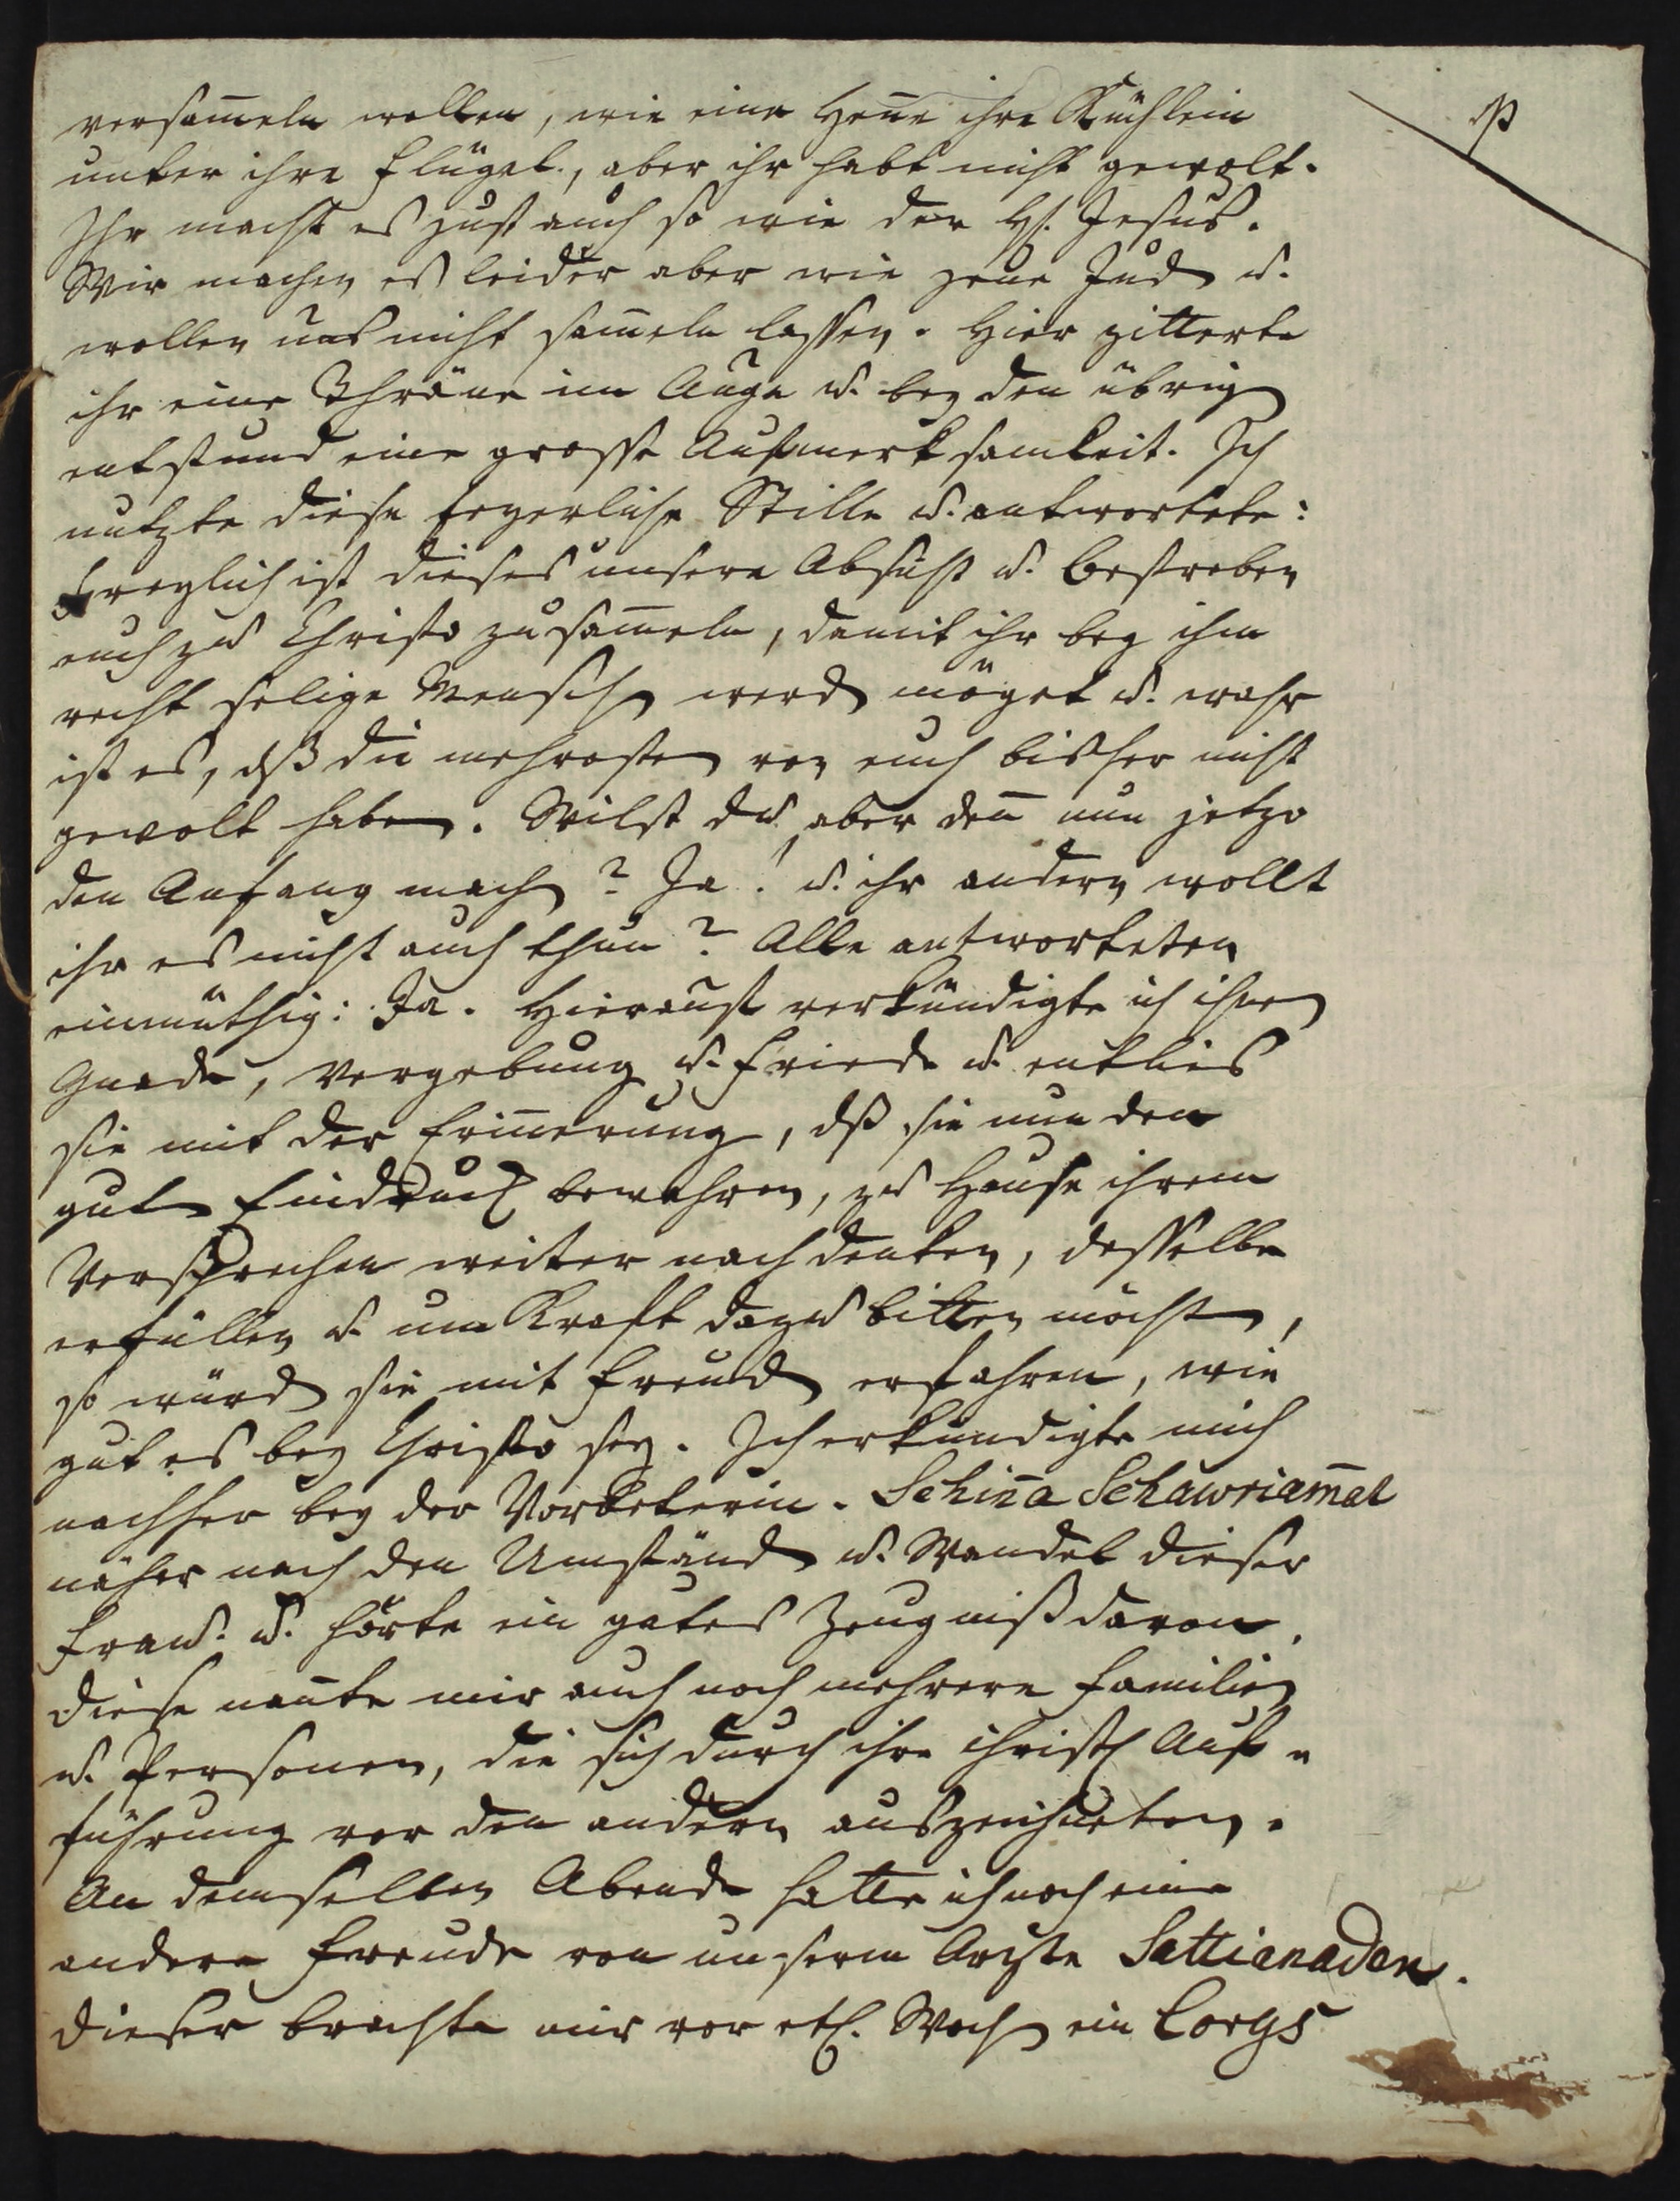 versam̅eln wollen, wie eine Hen̅e ihre Küchlein
unter ihre Flügel, aber ihr habt nicht gewolt.
Ihr macht es just auch so wie der H. Jesus.
Wir machen es leider aber wie jene Juden u.
wollen uns nicht sam̅eln lassen. Hier zitterte
ihr eine Thräne im Auge u. bey den übrigen
entstund eine grosse Aufmerksamkeit. Ich
nutzte diese feyerliche Stille u. antwortete:
Freylich ist dieses unsere Absicht u. Bestreben
euch zu Christo zu sam̅eln, damit ihr bey ihm
recht selige Menschen werden möget u. wahr
ist es, dß die mehresten von euch bisher nicht
gewolt haben. Wilst du aber den̅ nun jetzo
den Anfang machen? Ja! u. ihr andern wollt
ihr es nicht auch thun? Alle antworteten
einmüthig: Ja. Hierauf verkündigte ich ihnen
Gnade, Vergebung u. Friede u. entlies
sie mit der Erin̅erung, dß sie nun den
guten Eindruck bewahren, zu Hause ihrem
Versprechen weiter nachdenken, dasselbe
erfüllen u. um Kraft dazu bitten möchten,
so würden sie mit Freuden erfahren, wie
gut es bey Christo sey. Ich erkundigte mich
nachher bey der Vorbeterin Schin̅a Schawriam̅al
näher nach den Umständen u. Wandel dieser
Frau u. hörte ein gutes Zeugniß davon.
Diese nan̅te mir auch noch mehrere Familien
u. Personen, die sich durch ihre christl Auf-
führung vor den andern auszeichneten.
An demselben Abende hatte ich noch eine
andere Freude von unserm Arzte Sattianaden.
Dieser brachte mir vor etl. Wochen ein Corgs